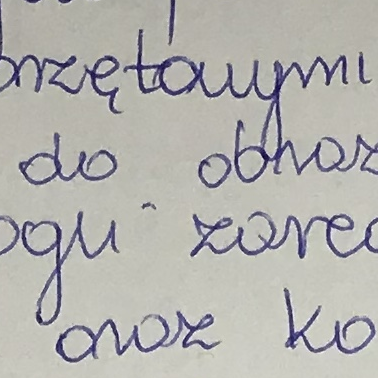 przętowymi
do obraz
ogli zarea
oraz ko